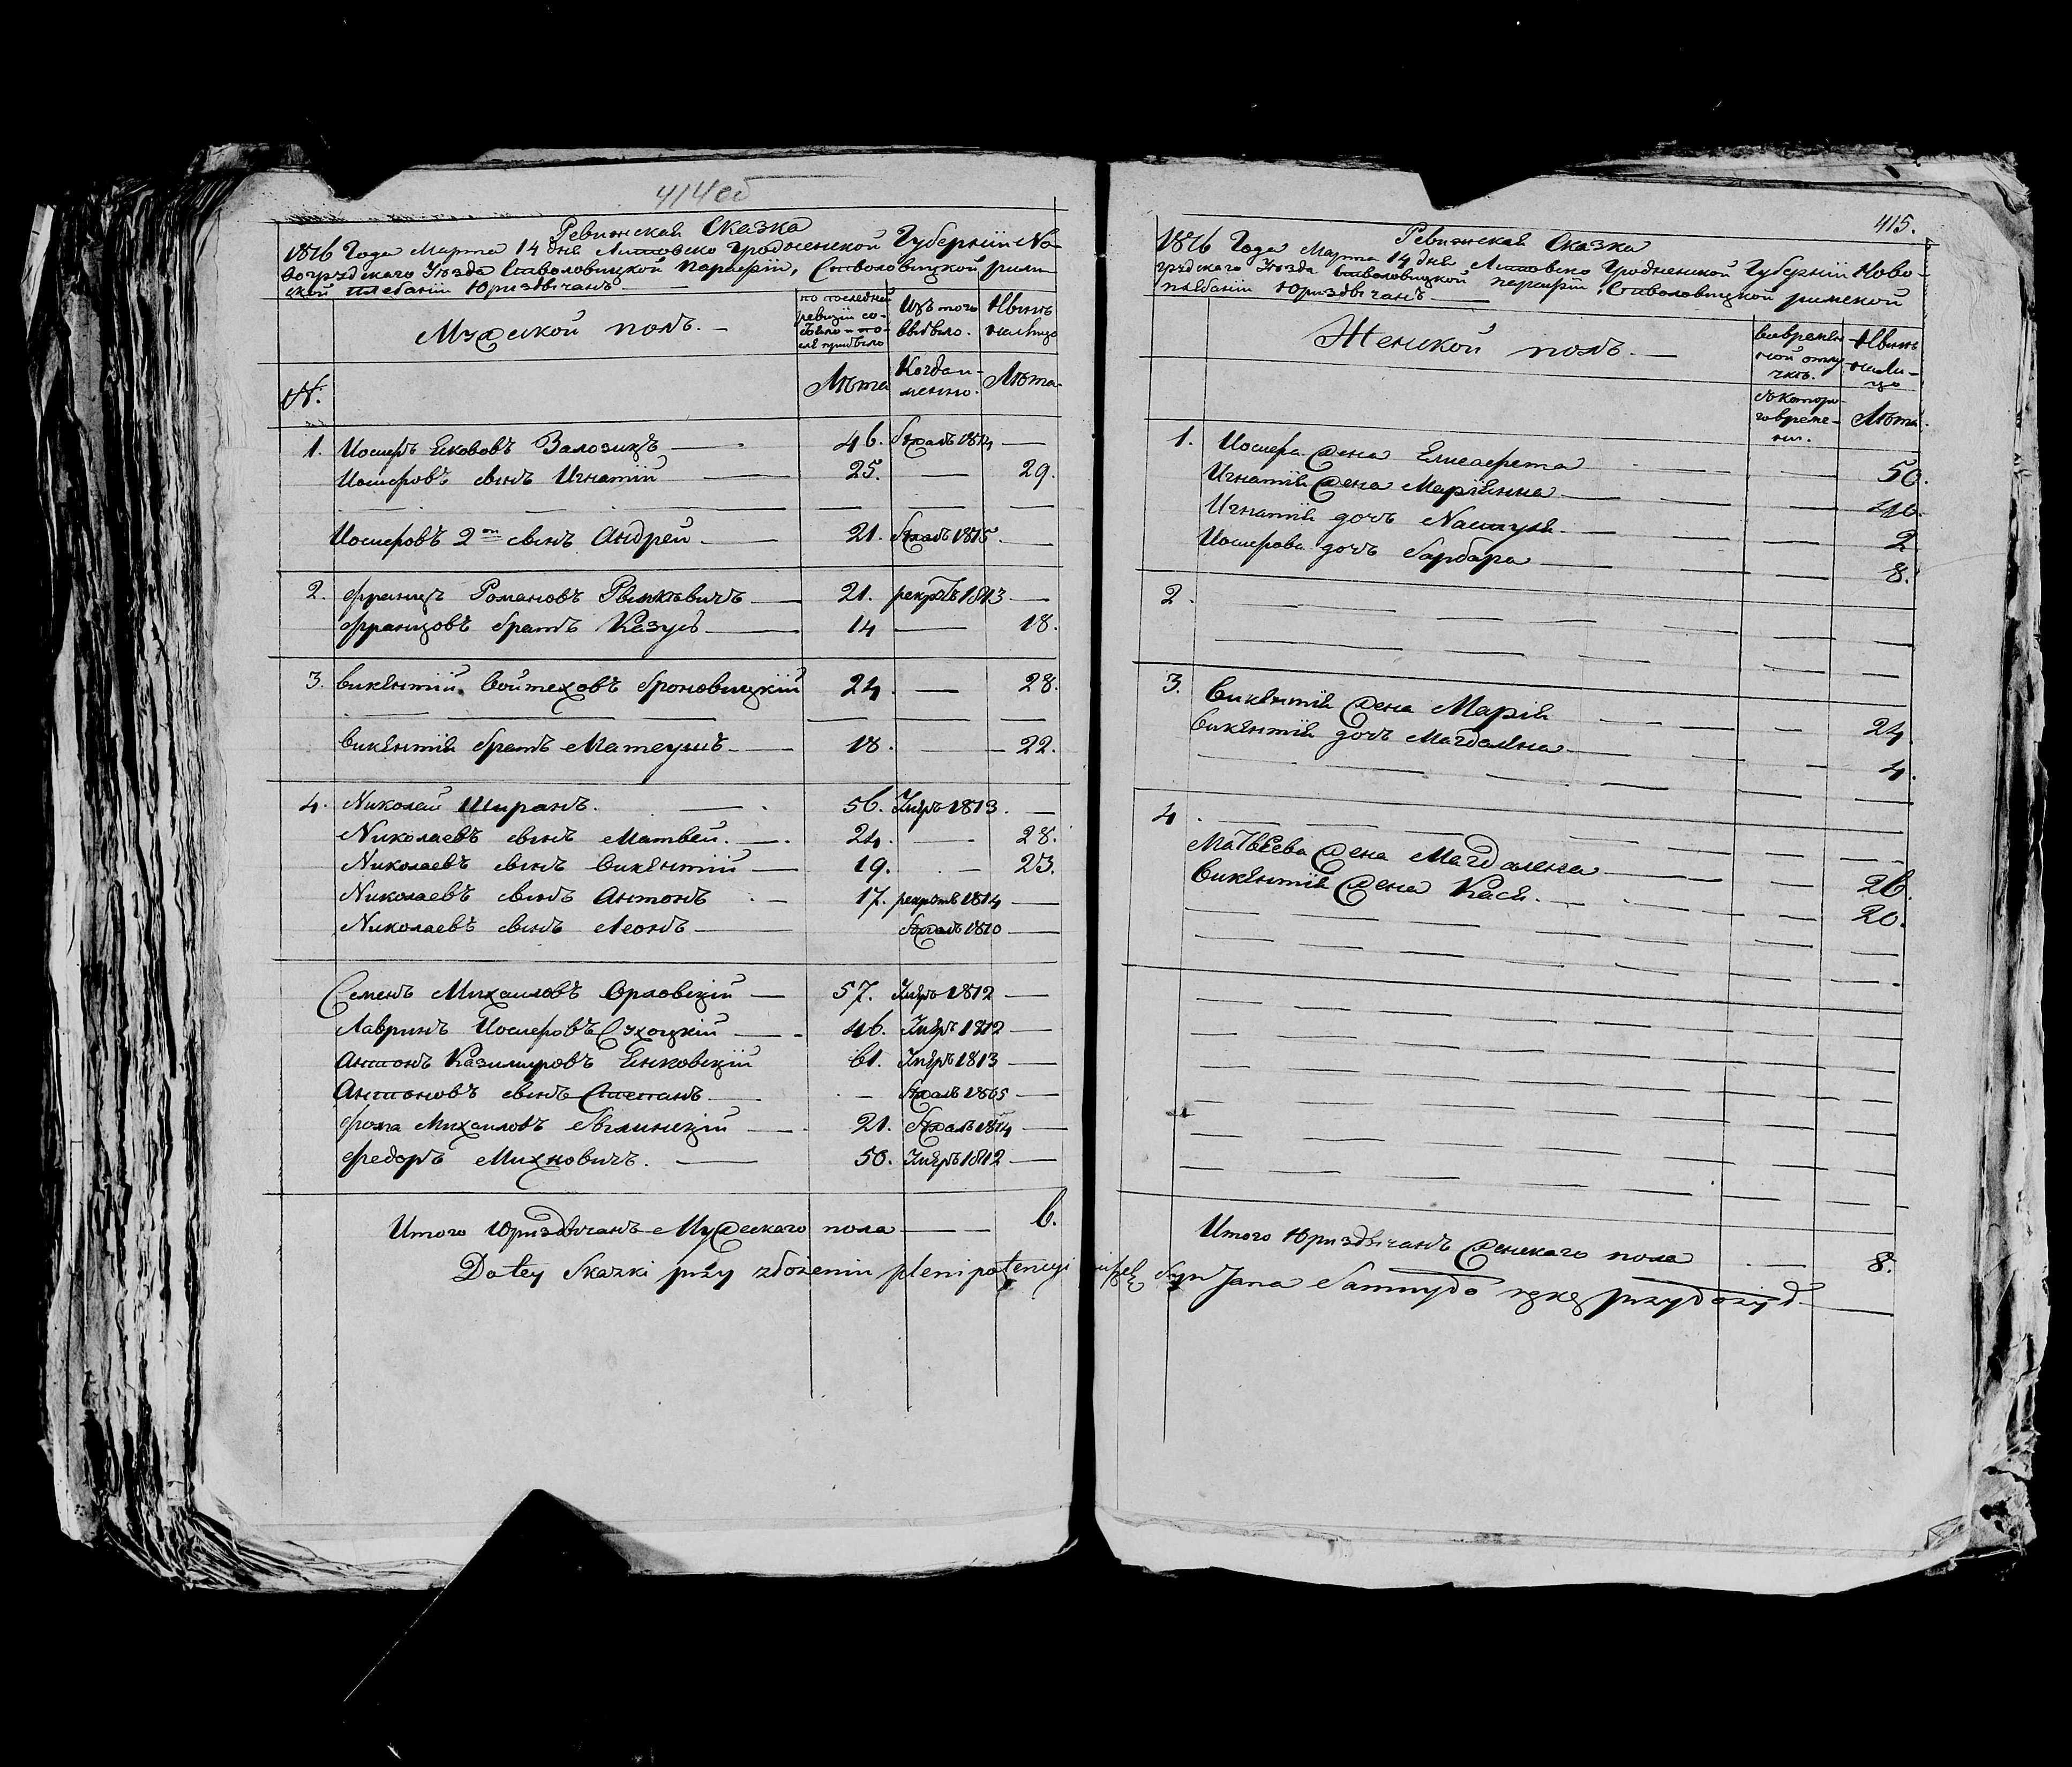 414об
Ревижская Сказка
1816 Года Марта 14 дня Литовско Гродненской Губернии Но-
вогрудскаго Уезда Стволовицкой парафіи, Стволовицкой рим-
ской плебаніи Юриздычанъ
Мужской полъ.
по последней ревизіи со-стояло и по-сле прибыло
Изъ того выбыло.
Нынѣ налицо
№.
Лѣта
Когда и-менно.
Лѣта
1. Иосифъ Яковъ 46. 1814
Иосифовъ сынъ Игнатій 25. 29.
Иосифовъ 2й сынъ Андрей 21. бѣжалъ 1815
2. Францъ Романовъ 21. рекрутъ 1813
Францовъ братъ Казусь 14 18.
3. Викентій Войтеховъ Броновицкій 24 28.
Викентія братъ Матеушъ 18. 22.
4. Николай Ширанъ. 56. Умеръ 1813.
Николаевъ сынъ Матвей. 24. 28.
Николаевъ сынъ Викентій 19. 23.
Николаевъ сынъ Антонъ 17. рекрутъ 1814
Николаевъ сынъ Леонъ бѣжалъ 1810
Семенъ Михаиловъ Орловскій 57. Умеръ 1812
Лавринъ Иосифовъ Сухоцкій 46. Умеръ 1812
Антонъ Казимировъ Янковскій 61. Умеръ 1813
Антоновъ сынъ Степанъ бѣжалъ
Фома Михаиловъ 21. бѣжалъ 1814
Федоръ Михновичъ. 50. Умеръ 1812
Итого Юриздычанъ Мужескаго пола 6.
Do tey Skazki przy złożeniu plenipotencyi
415.
Ревижская Сказка
1816 Года Марта 14 дня Литовско Гродненской Губерніи Ново-
грудскаго Уезда Стволовицкой парафіи, Стволовицкой римской
плебаніи Юриздычанъ
Женской полъ.
Вовремен-ной отлу-чкѣ.
Нынѣ нали-цо
Съ котора-го време-ни.
Лѣта.
1. Иосифа жена Елисавета 50.
Игнатія жена Маріянна
Игнатія дочь Настуля 2
Иосифова дочь Барбара 8.
2.
3. Викентія жена Марія 24
Викентія дочь Магдалена 4.
4.
Матвѣева жена Магдалена 26.
Викентія жена Кася. 20.
Итого Юриздычанъ женскаго пола 8.
Syn Jana